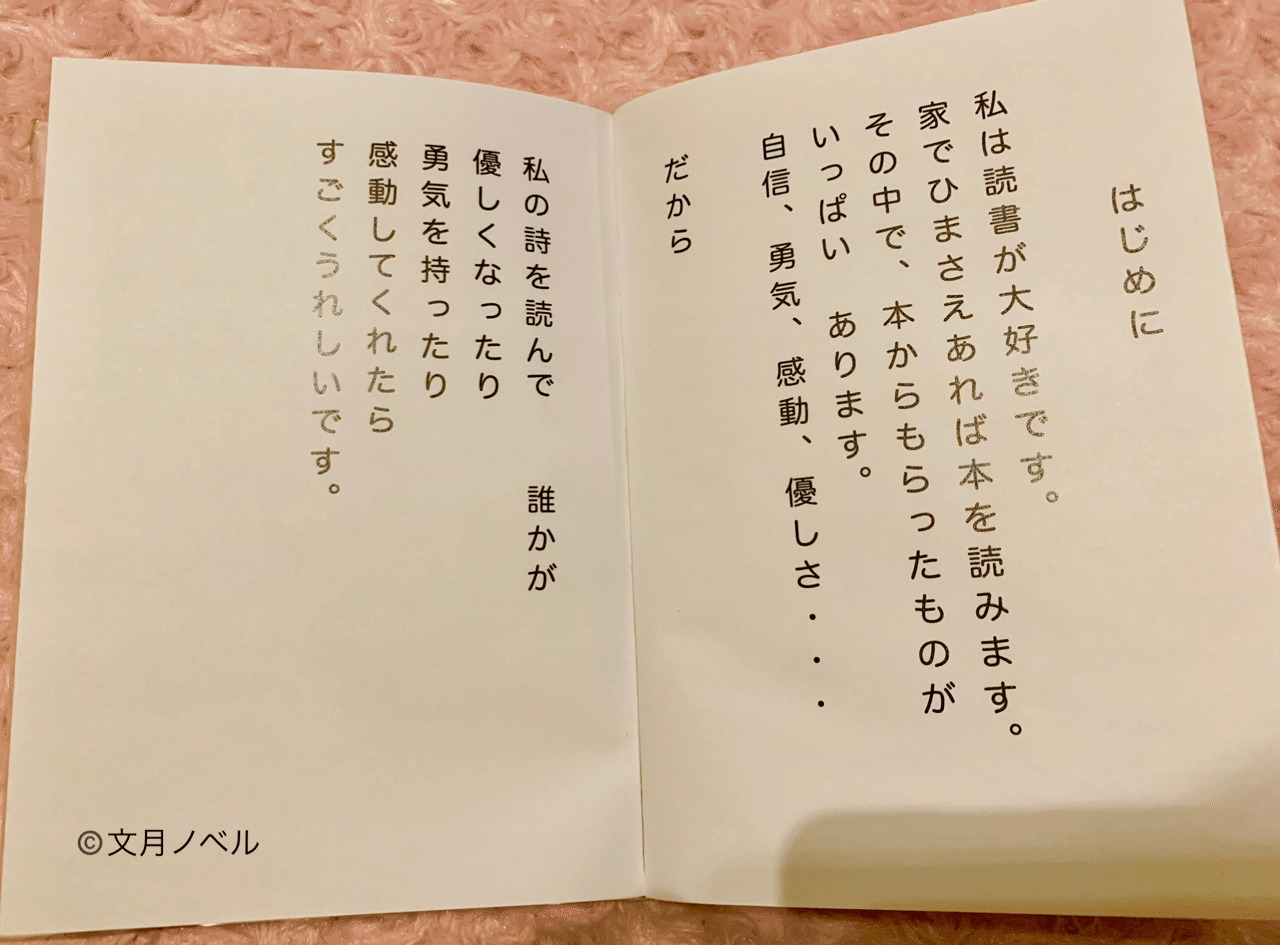 はじめに
私は読書が大好きです。
家でひまさえあれば本を読みます。
その中で、本からもらったものが
いっぱい　あります。
自信、勇気、感動、優しさ・・・
だから
私の詩を読んで　誰かが
優しくなったり
勇気を持ったり
感動してくれたら
すごくうれしいです。
©文月ノベル